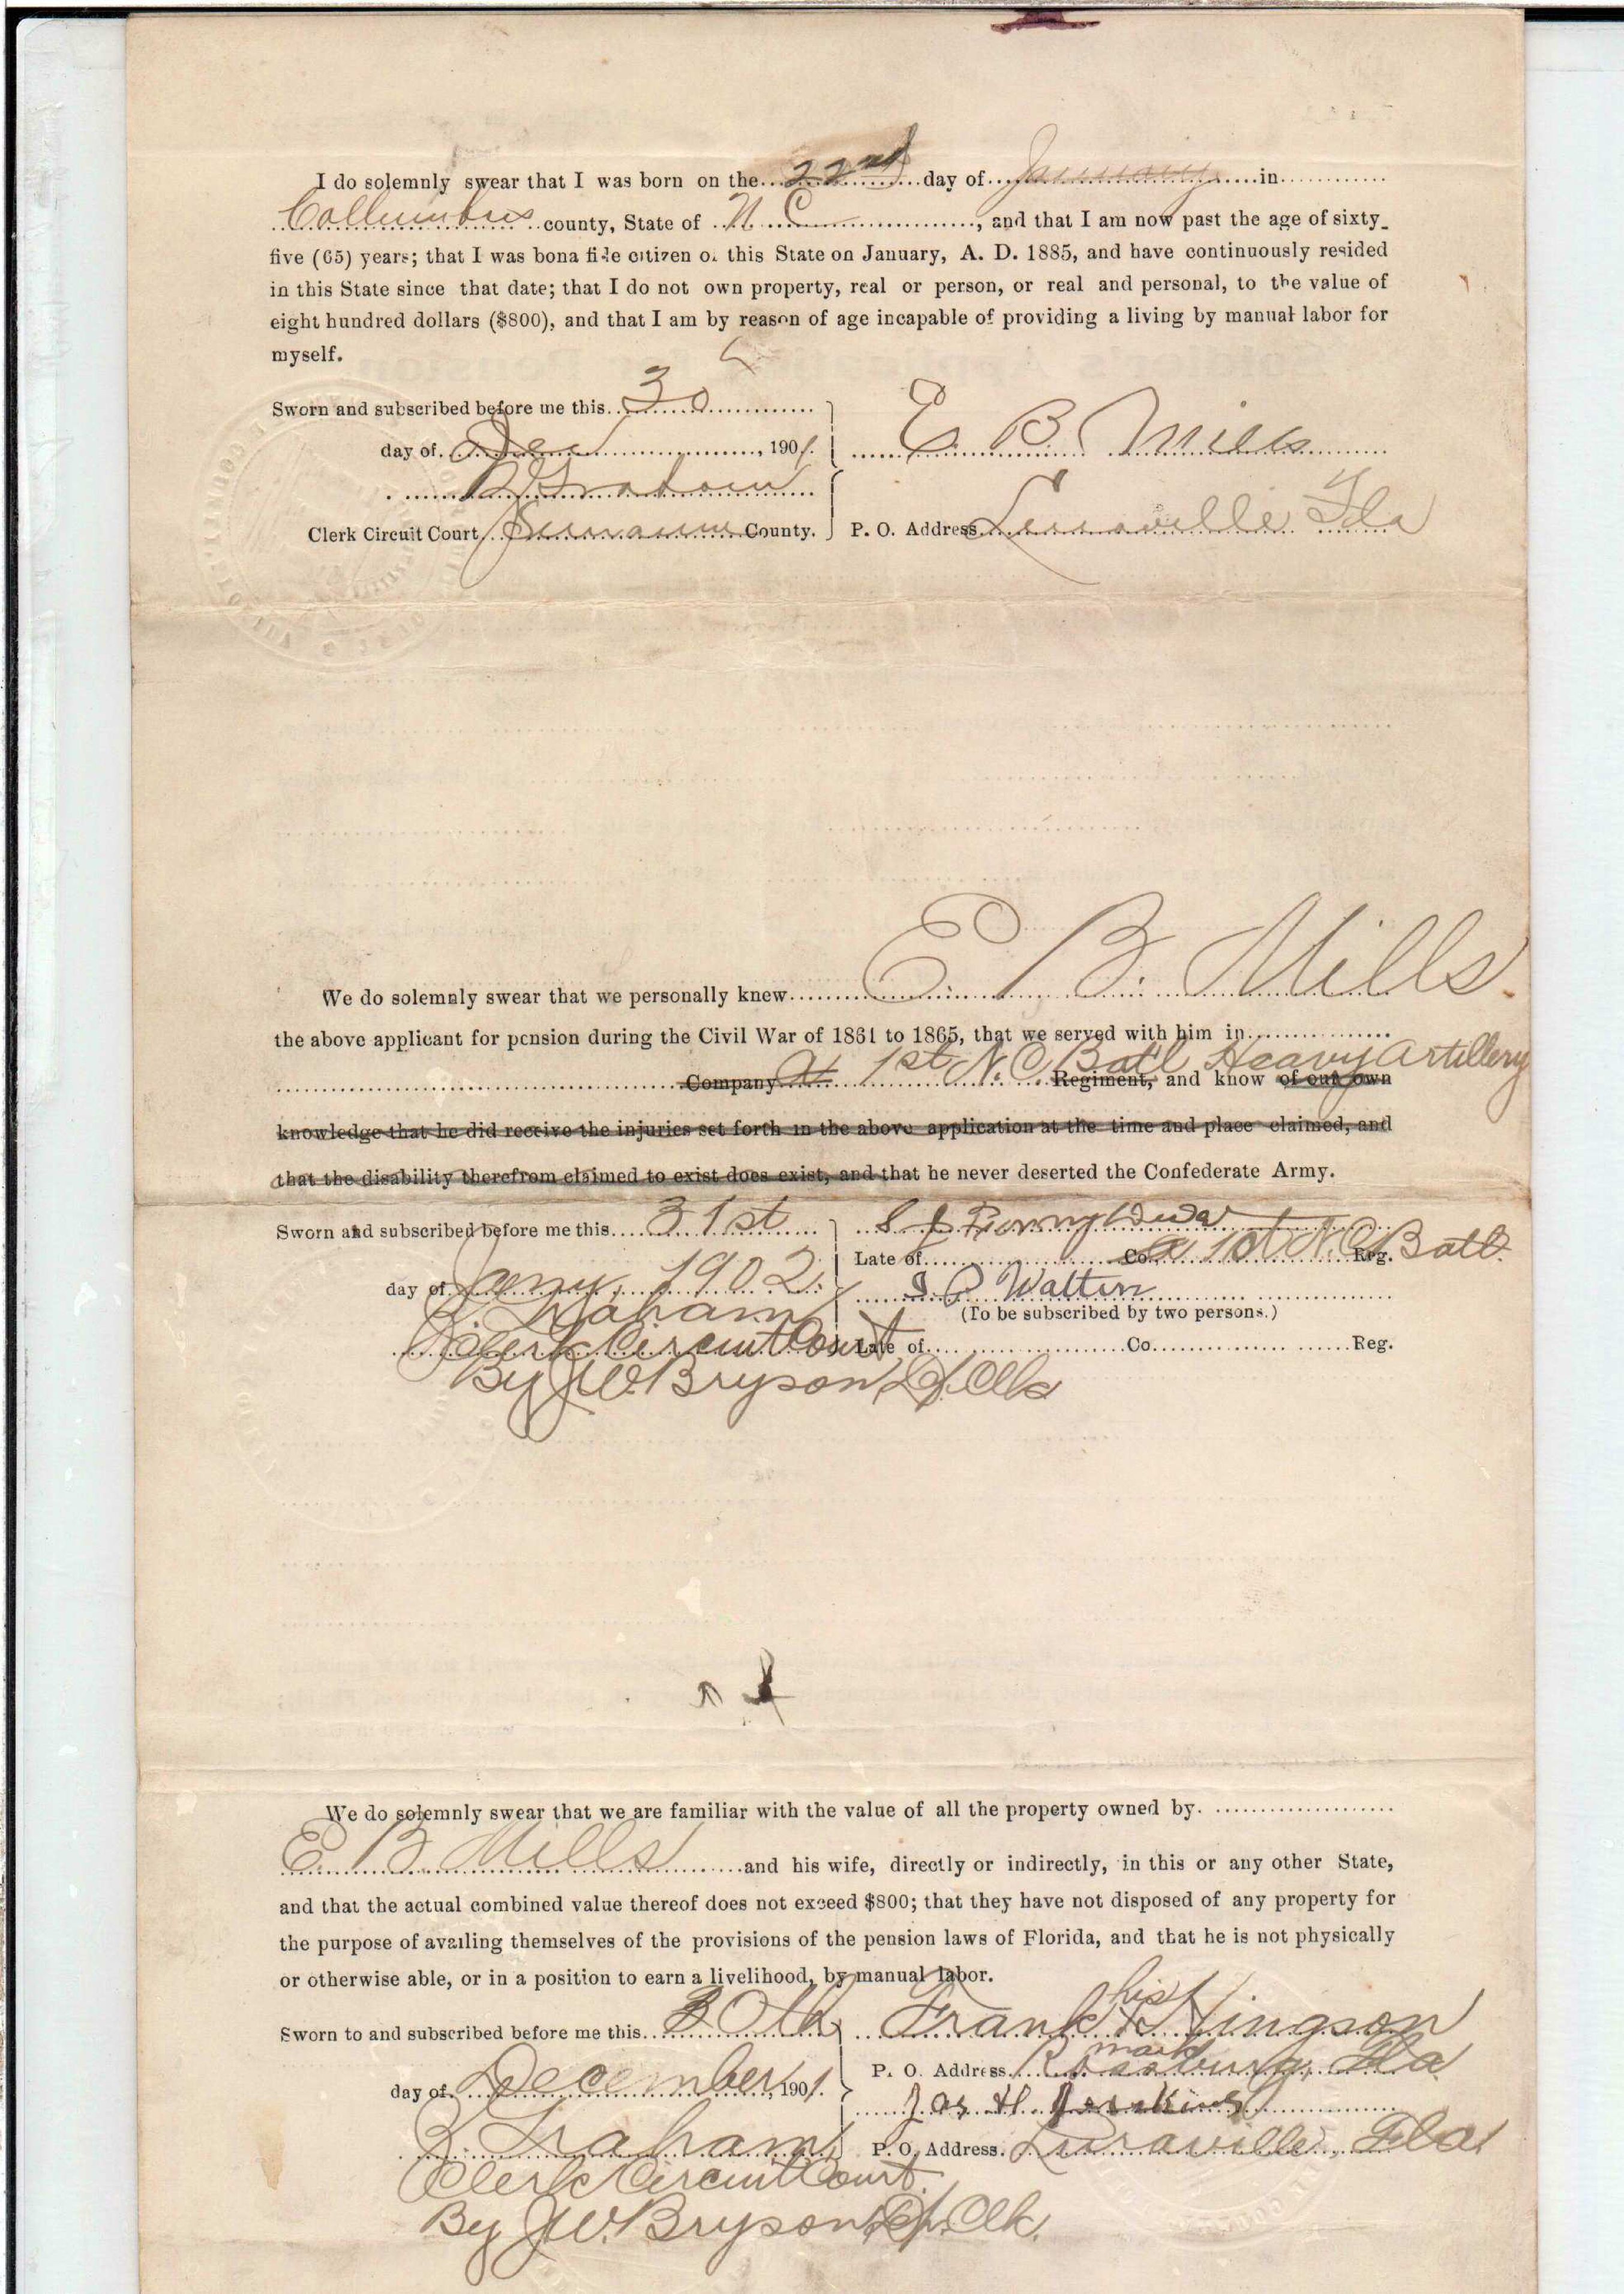 I do solemnly swear that I was born on the 22nd day of January in
Collumbus county, State of N. C, and that I am now past the age of sixty-
five (65) years; that I was bona fide citizen of this State on January, A. D. 1885, and have continuously resided
in this State since that date; that I do not own property, real or person, or real and personal, to the value of
eight hundred dollars ($800), and that I am by reason of age incapable of providing a living by manual labor for
myself.
Sworn and subscribed before me this 30
day of Dec, 1901. E. B. Mills
R Graham
Clerk Circuit Court, Suwannee County. P. O. Address Luraville Fla
We do solemnly swear that we personally knew E. B. Mills
the above applicant for pension during the Civil War of 1861 to 1865, that we served with him in
Company 1st N. C. Batl Heavy Artillery Regiment, and know of our own
knowledge that he did receive the injuries set forth in the above application at the time and place claimed, and
that the disability therefrom claimed to exist does exist, and that he never deserted the Confederate Army.
Sworn and subscribed before me this 31st
Late of Co. a 1st N. C. Reg. Batl.
day of Jany, 1902. Walton
(To be subscribed by two persons.)
R. Graham
Clerk Circuit Court Late of Co. Reg.
By J.W. Bryson, D. Clk
We do solemnly swear that we are familiar with the value of all the property owned by
E. B. Mills and his wife, directly or indirectly, in this or any other State,
and that the actual combined value thereof does not exceed $800; that they have not disposed of any property for
the purpose of availing themselves of the provisions of the pension laws of Florida, and that he is not physically
or otherwise able, or in a position to earn a livelihood, by manual labor.
his
Sworn to and subscribed before me this 30th Frank X Hingson
mark
P. O. Address. Fla
day of December, 1901. Jas H Jenkins
R. Graham P. O. Address. Luraville, Fla
Clerk Circuit Court.
By J.W. Bryson, Clk.